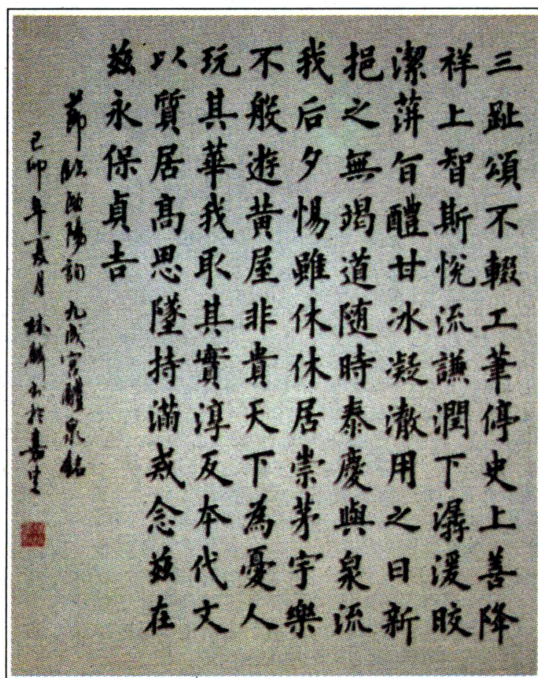 三趾頌不輟工筆停史上善降
祥上智斯悅流謙潤下潺湲皎
潔萍旨醴甘冰凝澈用之日新
挹之無竭道隨時泰慶與泉流
我后夕惕雖休休居崇茅宇樂
不般遊黃屋非貴天下為憂人
玩其華我取其實淳反本代文
以質居高思墜持滿戒念茲在
茲永保貞吉
節臨歐陽詢九成宮醴泉銘
己卯年夏月 林麟書於嘉